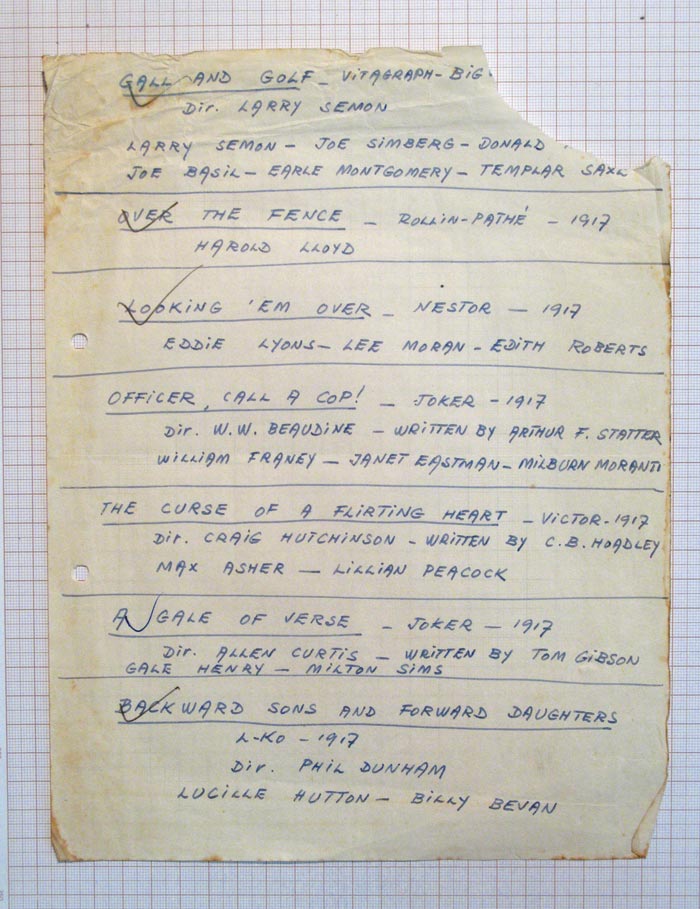 GALL AND GOLF - VITAGRAPH - BIG
Dir. LARRY SEMON
LARRY SEMON - JOE SIMBERG - DONALD
JOE BASIL - EARLE MONTGOMERY - TEMPLAR
OVER THE FENCE - ROLLIN-PATHÉ - 1917
HAROLD LLOYD
LOOKING 'EM OVER - NESTOR - 1917
EDDIE LYONS - LEE MORAN - EDITH ROBERTS
OFFICER, CALL A COP! - JOKER - 1917
Dir. W.W. BEAUDINE - WRITTEN BY ARTHUR F. STATTER
WILLIAM FRANEY - JANET EASTMAN - MILBURN MORANTI
THE CURSE OF A FLIRTING HEART - VICTOR - 1917
Dir. CRAIG HUTCHINSON - WRITTEN BY C.B. HOADLEY
MAX ASHER - LILLIAN PEACOCK
A GALE OF VERSE - JOKER - 1917
Dir. ALLEN CURTIS - WRITTEN BY TOM GIBSON
GALE HENRY - MILTON SIMS
BACKWARD SONS AND FORWARD DAUGHTERS
L-KO - 1917
Dir. PHIL DUNHAM
LUCILLE HUTTON - BILLY BEVAN